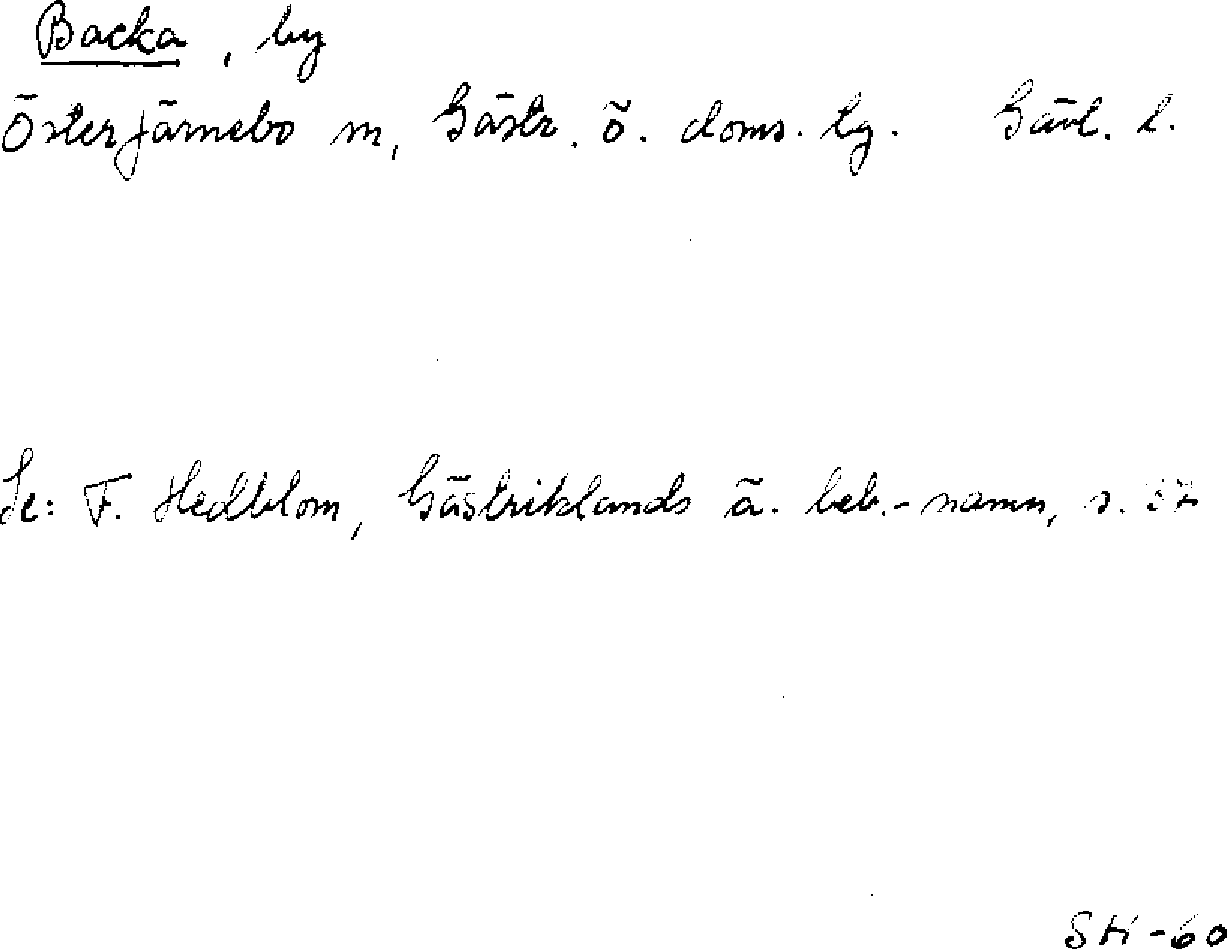 Backa, by
Österfärnebo sn, Gästr. ö. doms. lg. Gävl. l.
Se: F. Hedblom, Gästriklands ä. beb.-namn, s. 37
StI-60